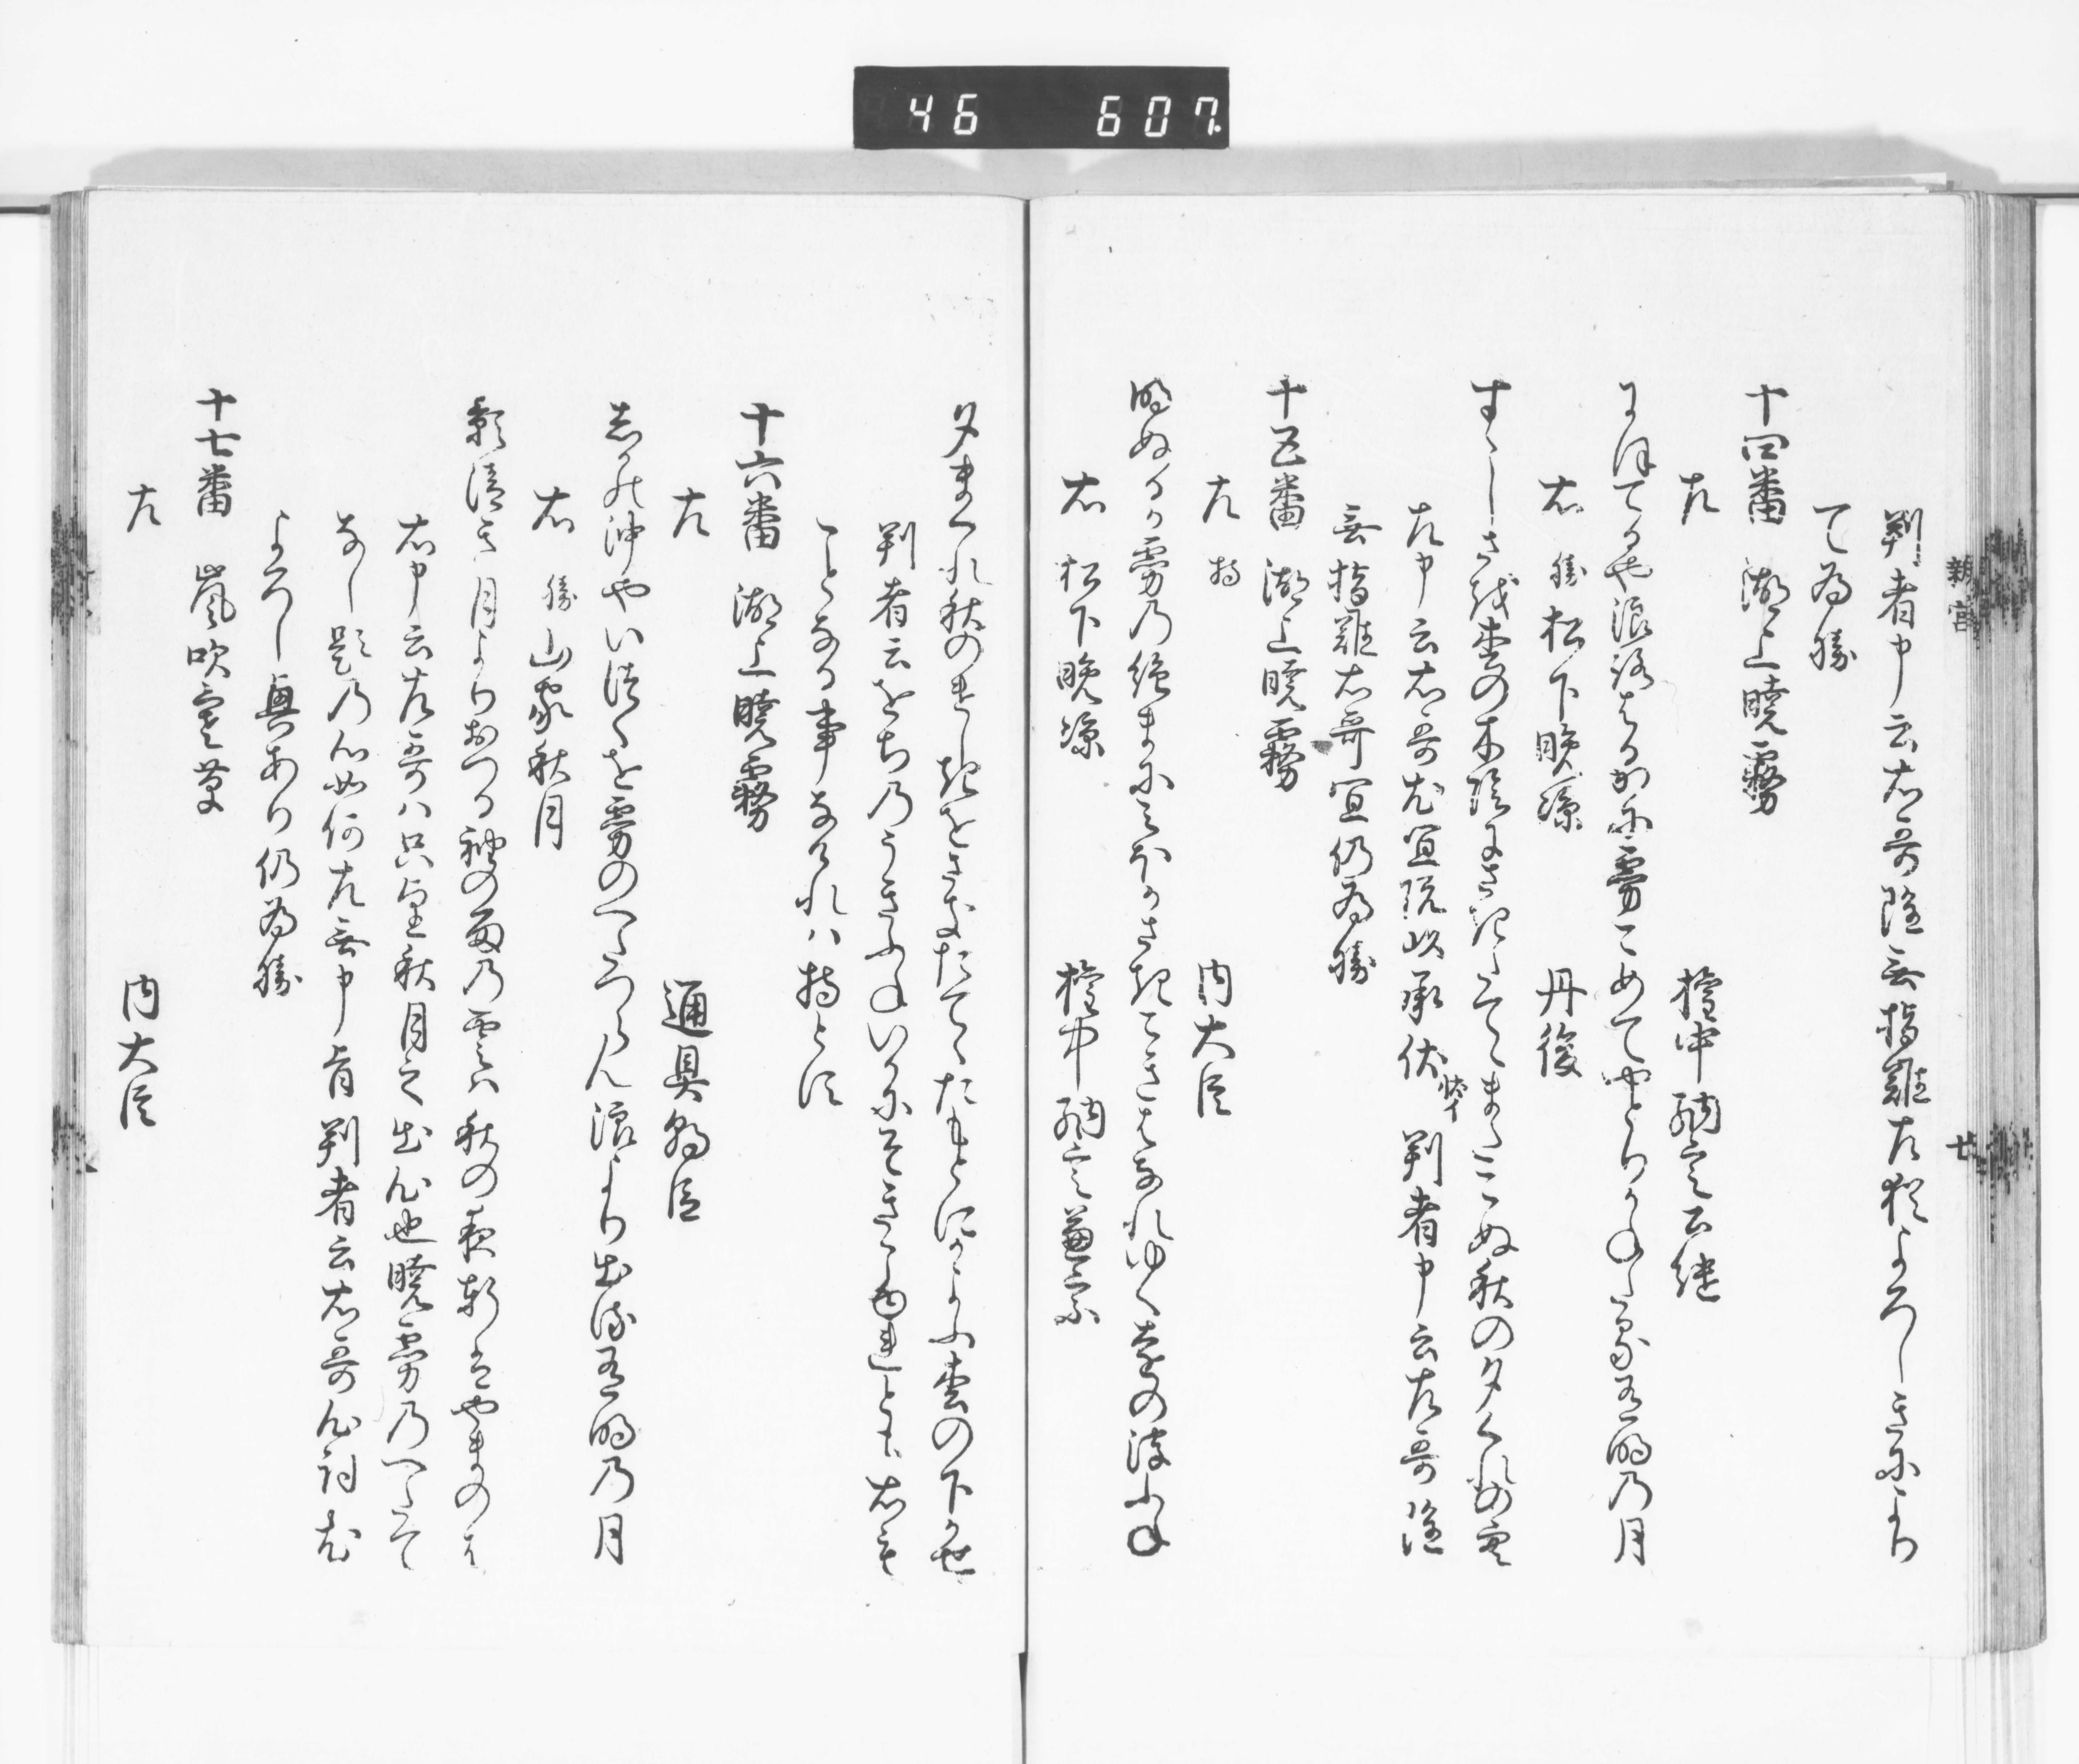 46 607.
新宮
廿
判者申云右哥雖無指難左猶よろしきによりて
て為勝
十四番 湖上暁霧
左 権中納言公継
にほてるや浪路はるかに霧こめてやとりかねたる有明の月
右 勝 松下晩凉 丹後
すゝしさは松の木陰にさきたてゝまたこぬ秋の夕くれの空
左申云右哥尤宜既以承伏 判者申云左哥雖
無指難右哥宜仍為勝
十五番 湖上暁霧
左 持 内大臣
明ぬるか霧の絶まにみほかさきこきはなれゆく遠の湊ふね
右 松下晩凉 権中納言兼宗
夕まくれ秋のけしきをさきたてゝたもとにかよふ松の下かせ
判者云をちのうきふねいかにそきこゆれとも右も
ことなる事なけれは持とす
十六番 湖上暁霧
左 通具朝臣
しかの浦やいほへを霧のへたつらん浪より出る有明の月
右 勝 山家秋月
影清き月よりおつる袖の雨の雲は秋の夜軒はやまのは
右申云左哥ハ只望秋月之出心也暁霧のへたて
なし題の心如何左無申旨 判者云右哥心詞尤
よろし興あり仍為勝
十七番 嵐吹寒草
左 内大臣